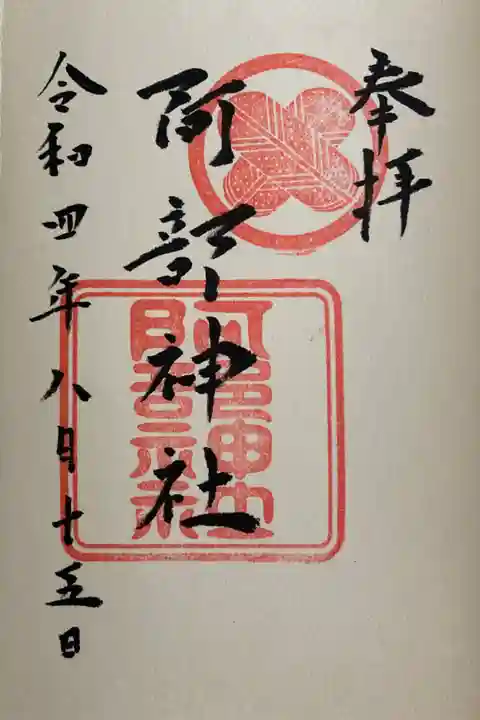 奉拝
阿部神社
阿部神社
令和四年八月十五日